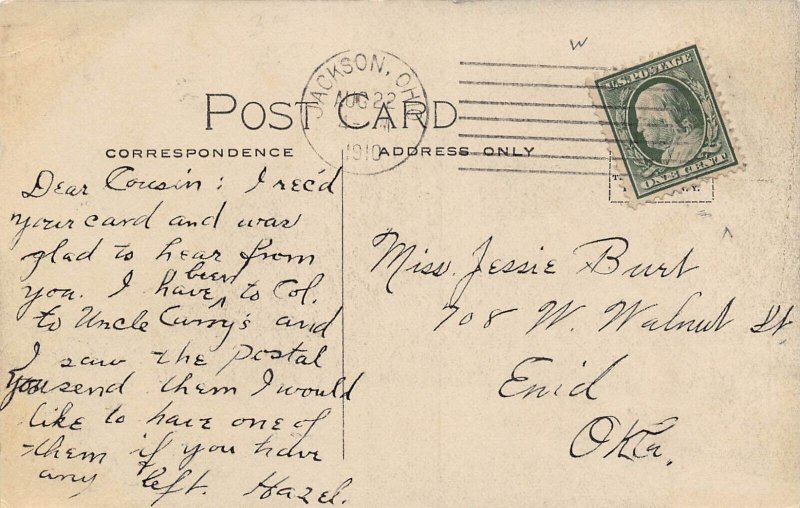 JACKSON, OHIO
AUG 22
1910
U.S. POSTAGE
ONE CENT
POST CARD
CORRESPONDENCE
ADDRESS ONLY
Dear Cousin: I rec'd
your card and was
glad to hear from
you. I have been to Col.
to Uncle Curry's and
I saw the postal
you send them I would
like to have one of
them if you have
any left. Hazel.
Miss. Jessie Burt
708 W. Walnut St
Enid
Okla.